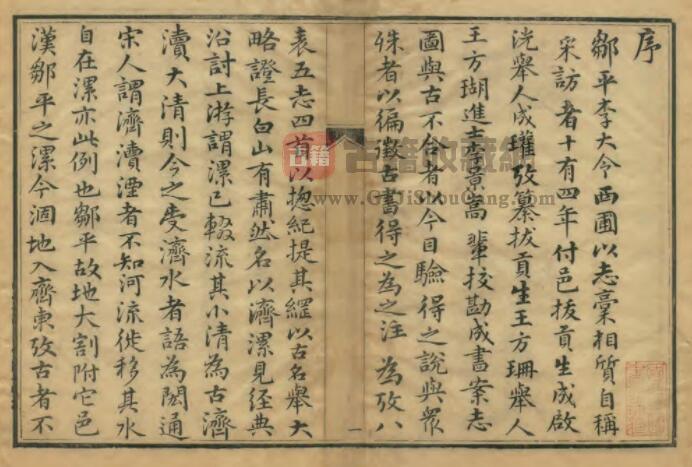 序
鄒平李大令西圃以志稾相質自稱
采訪者十有四年付邑拔貢生成啟
洸舉人成瓘攷纂拔貢生王方珊舉人
王方瑚進士李景嵩輩挍勘成書案志
圖與古不合者以今目驗得之說與眾
殊者以徧徵古書得之為之注 為攷八
表五志四首以揔紀提其纲以古名舉大
略證長白山有肅然名以濟漯見經典
沿討上游謂漯已輟流其小清為古濟
瀆大清則今之受濟水者語為閎通
宋人謂濟瀆湮者不知河流徙移其水
自在漯亦此例也鄒平故地大割附它邑
漢鄒平之漯今涸地入齊東攷古者不
一
古籍
古籍收藏網
www.GuJiShouCang.com